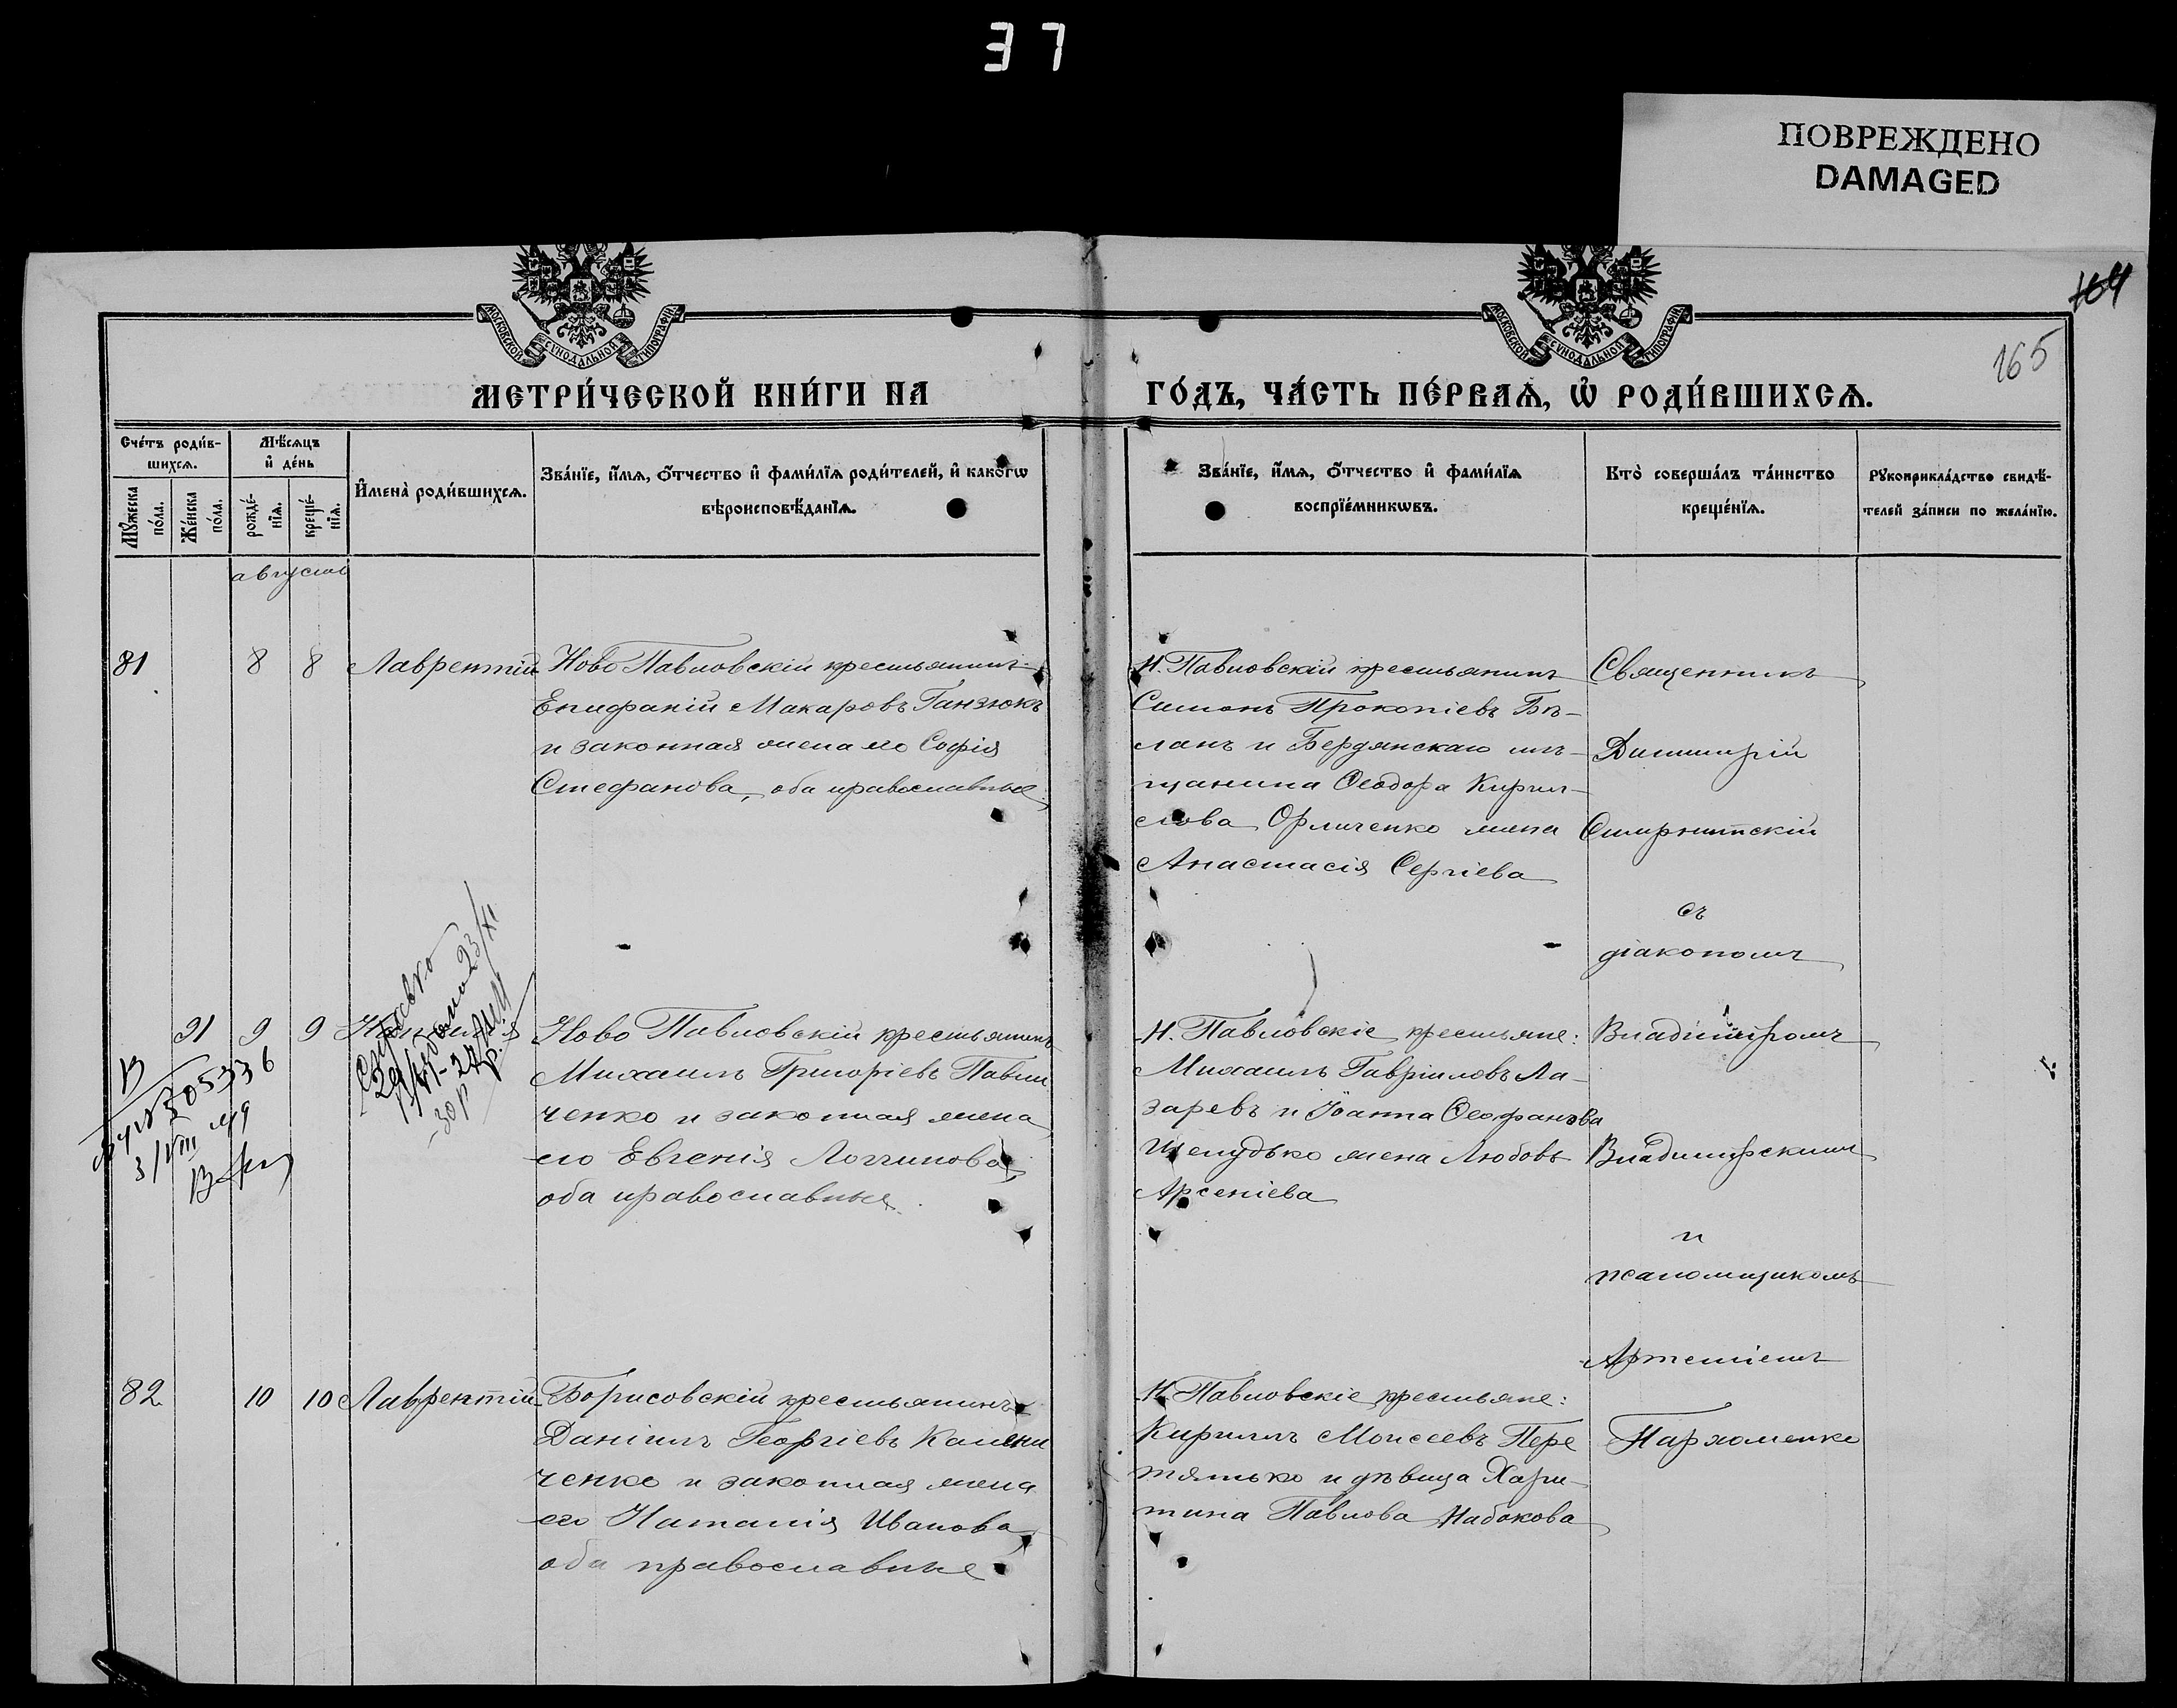 37
ПОВРЕЖДЕНО
DAMAGED
МОСКОВСКОЙ СѴНОДАЛЬНОЙ ТИПОГРАФІИ
МОСКОВСКОЙ СѴНОДАЛЬНОЙ ТИПОГРАФІИ
164
165
МЕТРИ́ЧЕСКОЙ КНИ́ГИ НА
ГО́ДЪ, ЧА́СТЬ ПЕ́РВАѦ, Ѡ҆ РОДИ́ВШИХСѦ.
Сче́тъ роди́в-
шихсѧ.
Мꙋ́жеска
по́ла.
Же́нска
по́ла.
Мѣ́сѧцъ
и҆ де́нь
рожде́-
нїѧ.
креще́-
нїѧ.
И҆мена̀ роди́вшихсѧ.
Зва́нїе, и҆́мѧ, ѻ҆́тчество и҆ фами́лїѧ роди́телей, и҆ како́гѡ
вѣроисповѣ́данїѧ.
Зва́нїе, и҆́мѧ, ѻ҆́тчество и҆ фами́лїѧ
воспрїе́мникѡвъ.
Кто̀ соверша́лъ та́инство
креще́нїѧ.
Рꙋкоприкла́дство свидѣ́-
телей за́писи по жела́нїю.
августъ
81
8
8
Лаврентій
Ново Павловскій крестьянинъ
Епифаній Макаровъ Ганзюкъ
и законная жена его Софія
Стефанова, оба православные
Н. Павловскій крестьянинъ
Симонъ Прокопіевъ Бѣ-
ланъ и Бердянскаго мѣ-
щанина Ѳеодора Кирил-
лова Орличенко жена
Анастасія Сергіева
Священникъ
Димитрій
Смирнитскій
съ
діакономъ
91
9
9
Наталія
Справка
23/XI
Ново Павловскій крестьянинъ
Михаилъ Григоріевъ Павли
ченко и законная жена
его Евгенія Логгинова
оба православные
Н. Павловскіе крестьяне:
Михаилъ Гавріиловъ Ла-
заревъ и Іоанна Ѳеофанова
Шелудько жена Любовь
Арсеніева
Владиміромъ
Владимірскимъ
и
псаломщикомъ
Артеміемъ
Пархоменко
В
№ 305336
3/VIII 49
82
10
10
Лаврентій
Борисовскій крестьянинъ
Даніилъ Георгіевъ Калини
ченко и законная жена
его Наталія Иванова
оба православные
Н. Павловскіе крестьяне:
Кириллъ Моисеевъ Пере
тятько и дѣвица Хари-
тина Павлова Набокова